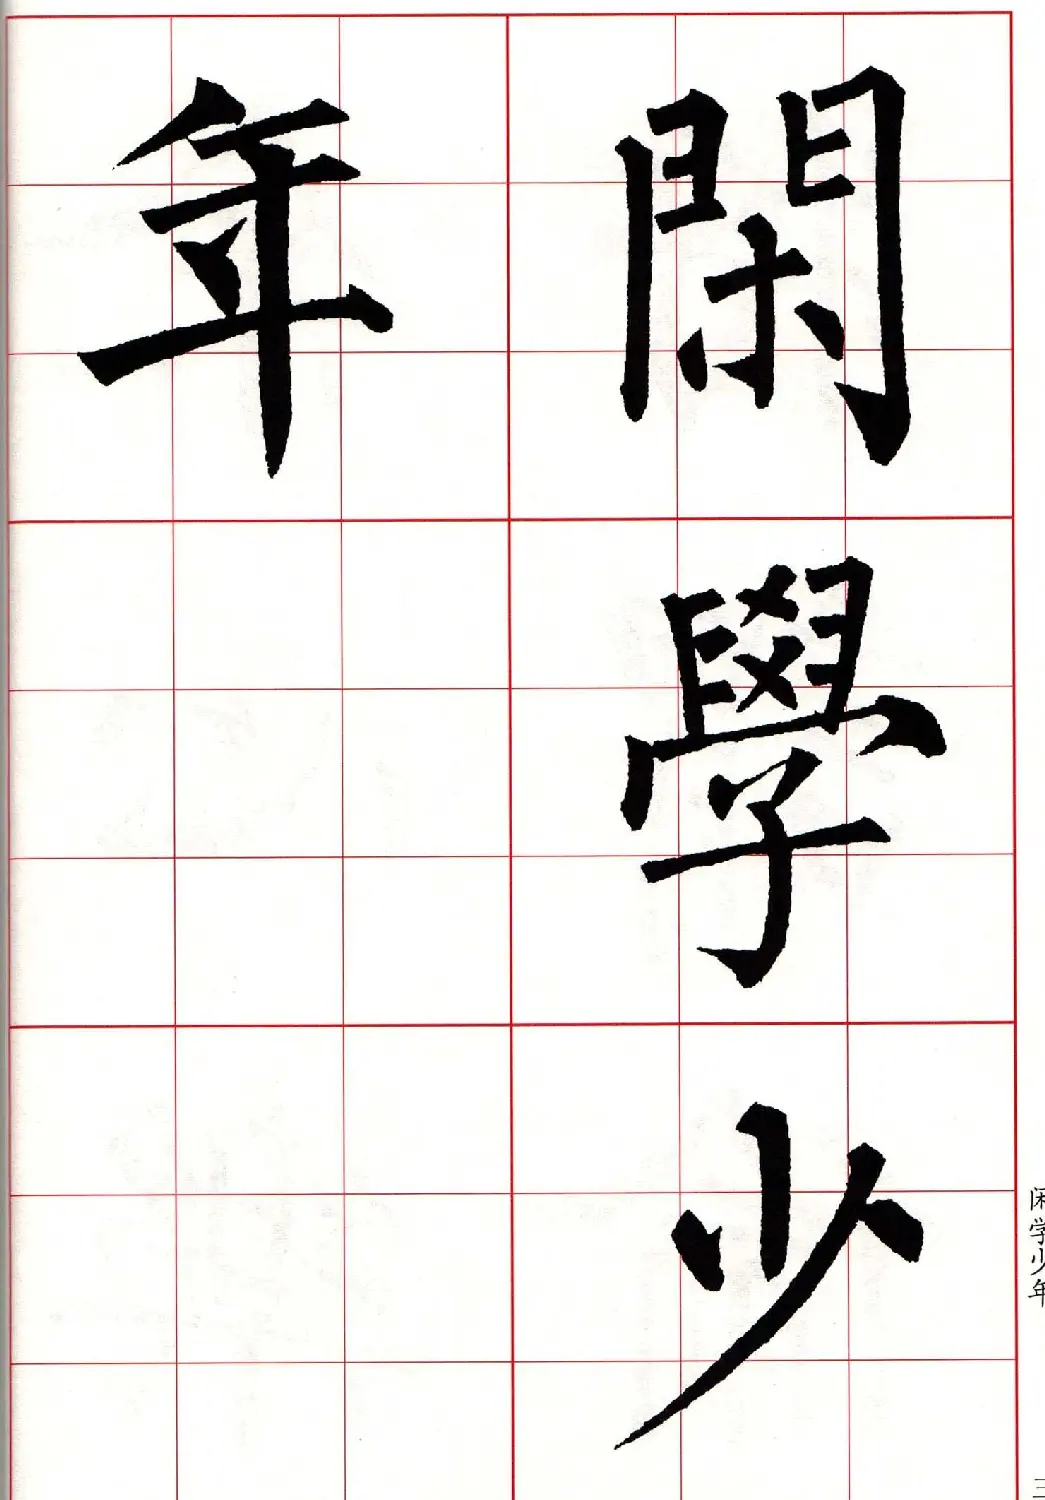 閑學少
年
闲学少年
三